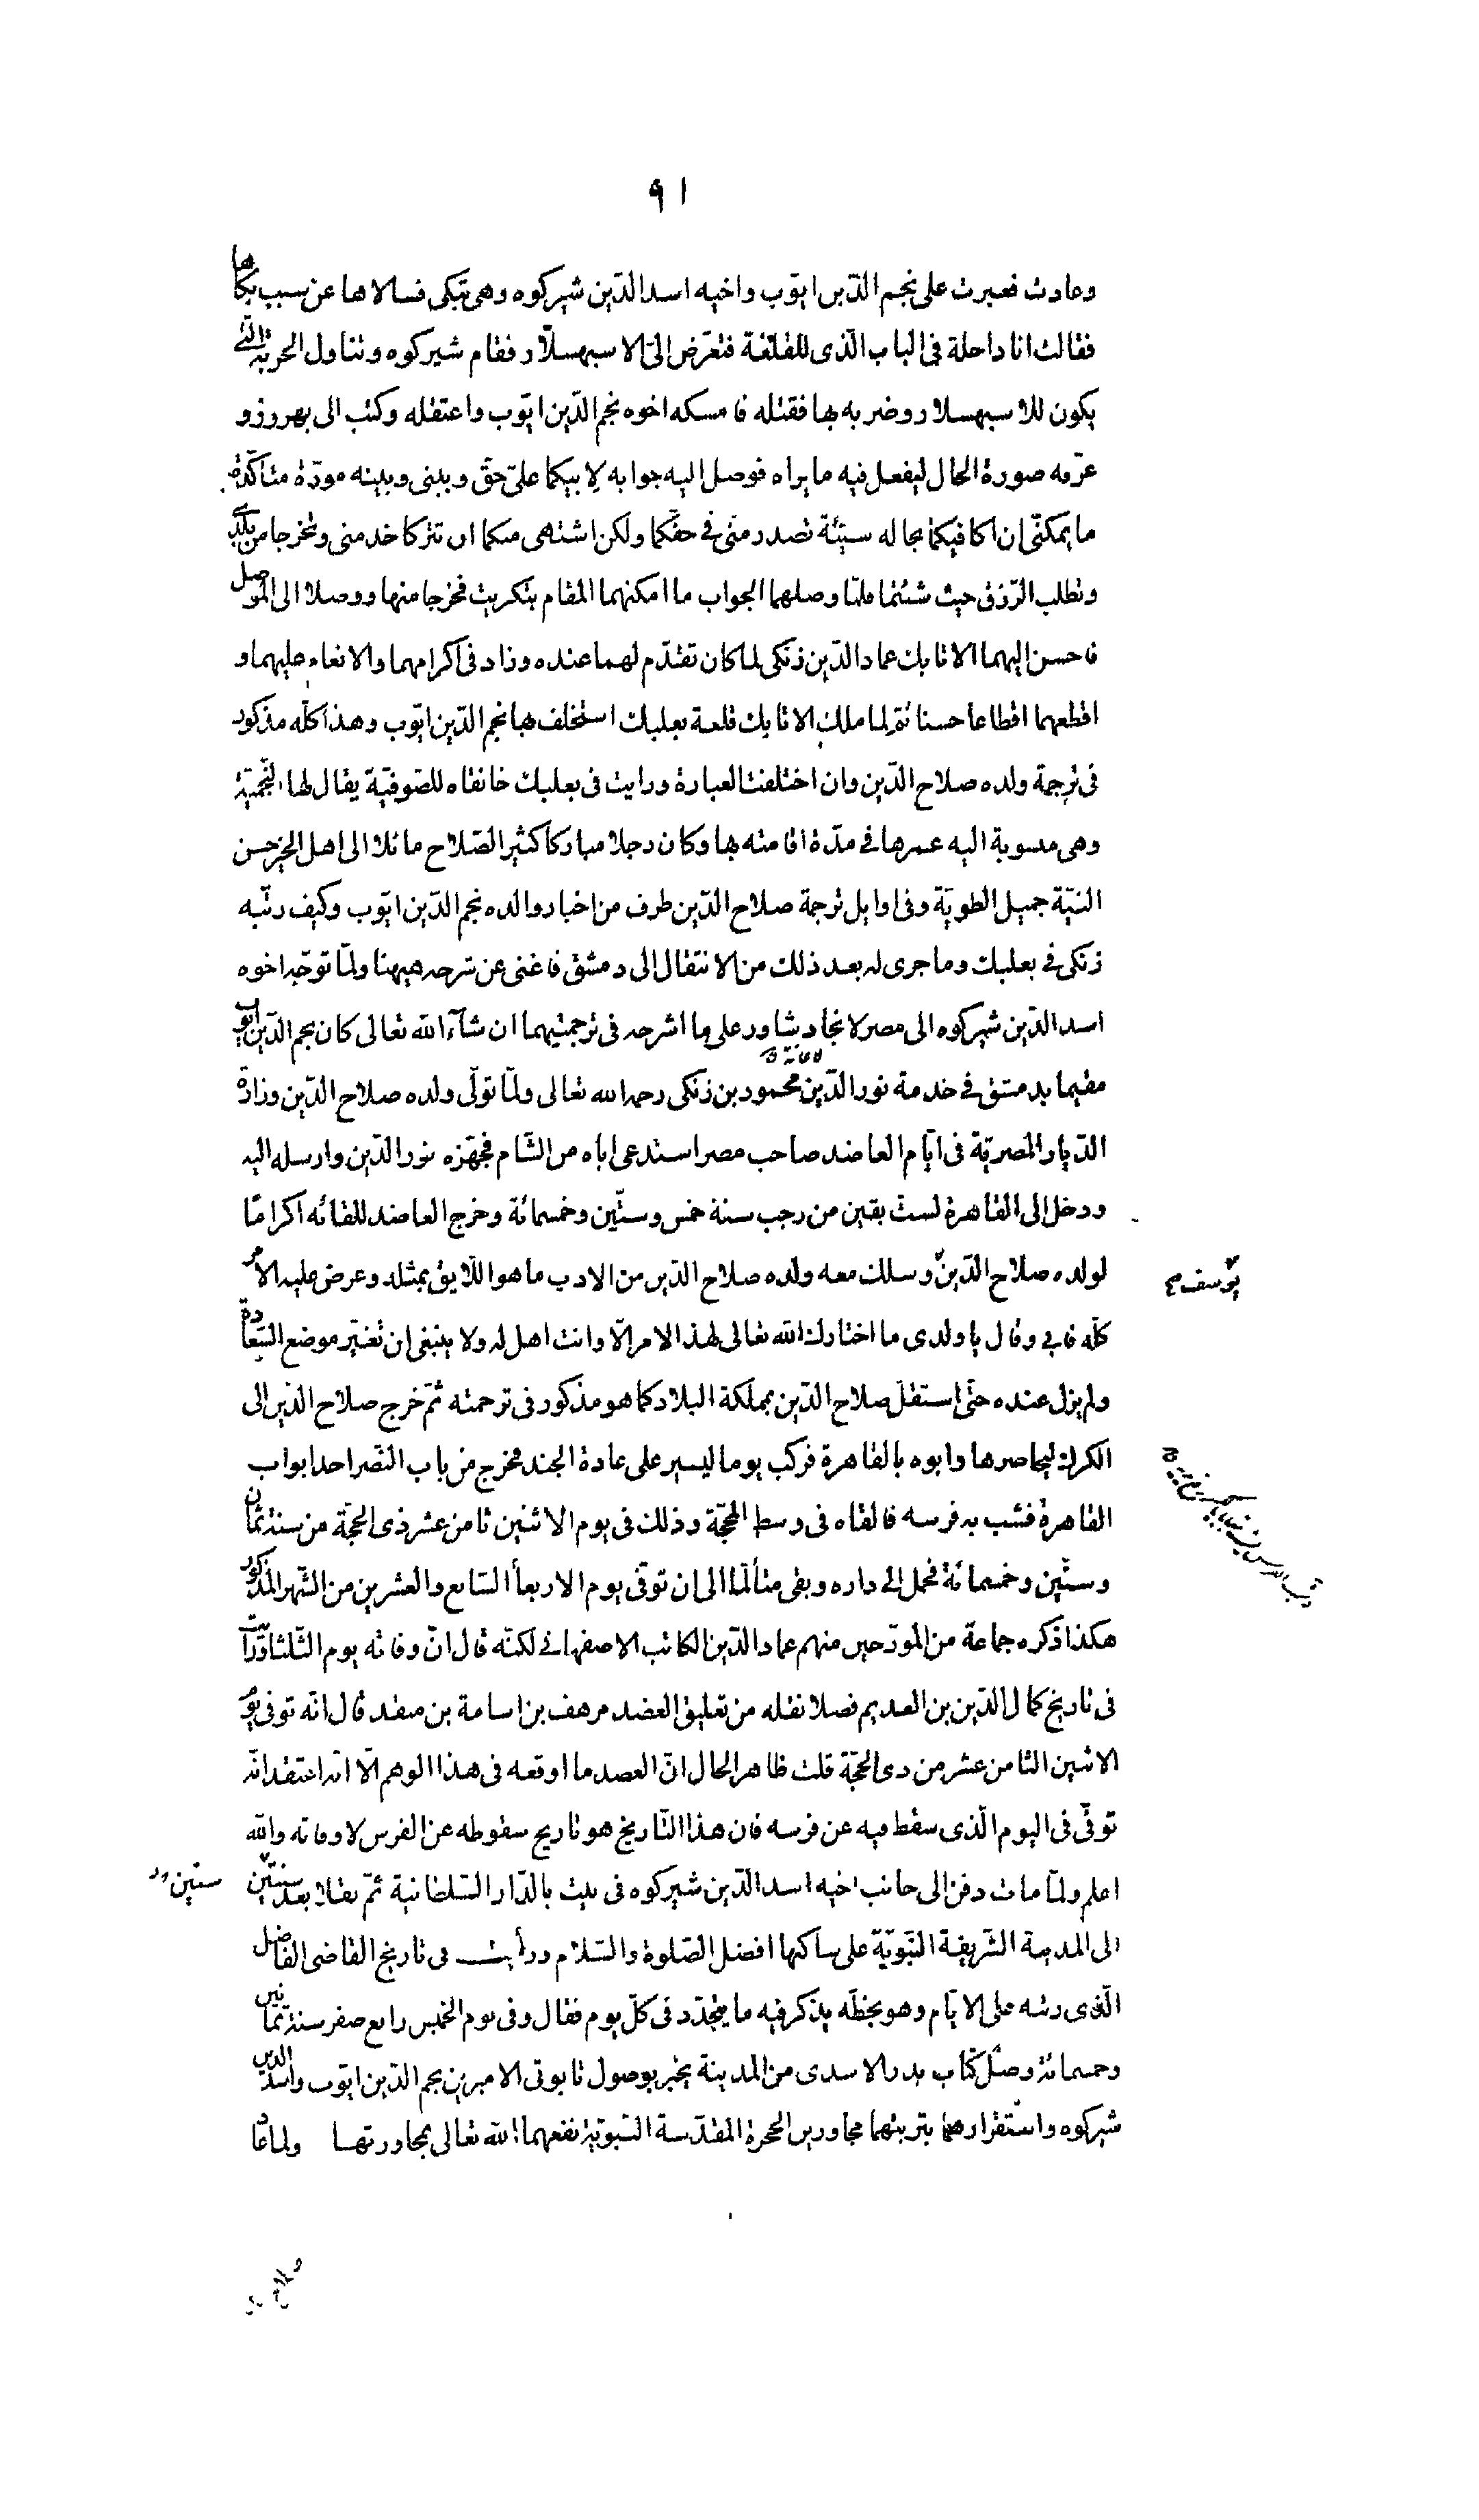 ٩١
وعادت فعبرت على نجم الدّين ايّوب واخيه اسد الدّين شيركوه وهى تبكى فسالاها عن سبب بكاها
فقالت انا داخلة فى الباب الّذى للقلعة فتعرّض الىّ الاسبهسلّار فقام شيركوه وتناول الحربة الّتى
يكون للاسبهسلار وضربه بها فقتله فامسكه اخوه نجم الدّين ايّوب واعتقله وكتب الى بهروز و
عرّفه صورة الحال ليفعل فيه ما يراه فوصل اليه جوابه لابيكما علىّ حقّ وبينى وبينه مودّة متأكّدة
ما يمكنّى ان اكافيكما بحاله سيّئة تصدر منّى فى حقّكما ولكن اشتهى منكما ان تتركا خدمتى وتخرجا من بلدى
وتطلب الرّزق حيث شئتما فلمّا وصلهما الجواب ما امكنهما المقام بتكريت فخرجا منها ووصلا الى الموصل
فاحسن اليهما الاتابك عماد الدّين زنكى لما كان تقدّم لهما عنده وزاد فى اكرامهما والانعام عليهما و
اقطعهما اقطاعا حسنا ثمّ لما ملك الاتابك قلعة بعلبك استخلف بها نجم الدّين ايّوب وهذا كلّه مذكور
فى ترجمة ولده صلاح الدّين وان اختلفت العبارة ورايت فى بعلبك خانقاه للصّوفيّة يقال لها النّجميّة
وهى منسوبة اليه عمرها فى مدّة اقامته بها وكان رجلا مباركا كثير الصّلاح مائلا الى اهل الخير حسن
النيّة جميل الطويّة وفى اوايل ترجمة صلاح الدّين طرف من اخبار والده نجم الدّين ايّوب وكيف رتّبه
زنكى فى بعلبك وما جرى له بعد ذلك من الانتقال الى دمشق فاغنى عن شرحه هيهنا ولمّا توجّه اخوه
اسد الدّين شيركوه الى مصر لانجاد شاور على ما اشرحه فى ترجمتيهما ان شآء الله تعالى كان نجم الدّين ايّوب
مقيما بدمشق فى خدمة نور الدّين محمود بن زنكى رحمه الله تعالى ولمّا تولّى ولده صلاح الدّين وزارة
الدّيار المصريّة فى ايّام العاضد صاحب مصر استدعى اباه من الشّام فجهّزه نور الدّين وارسله اليه
ودخل الى القاهرة لستّ بقين من رجب سنة خمس وستّين وخمسمائة وخرج العاضد للقائه اكرامًا
لولده صلاح الدّين وسلك معه ولده صلاح الدّين من الادب ما هو اللّايق بمثله وعرض عليه الامر
يوسف
كلّه فابى وقال يا ولدى ما اختارك الله تعالى لهذا الامر الّا وانت اهل له ولا ينبغى ان تغيّر موضع السّعادة
ولم يزل عنده حتّى استقلّ صلاح الدّين بمملكة البلاد كما هو مذكور فى ترجمته ثمّ خرج صلاح الدّين الى
الكرك ليحاصرها وابوه بالقاهرة فركب يوما ليسير على عادة الجند فخرج من باب النّصر احد ابواب
القاهرة فشبّ به فرسه فالقاه فى وسط المحجّة وذلك فى يوم الاثنين ثامن عشر ذى الحجّة من سنة ثمان
وستّين وخمسمائة فحمل الى داره وبقى متألّما الى ان توفّى يوم الاربعأ السّابع والعشرين من الشّهر المذكور
هكذا ذكره جماعة من المورّخين منهم عماد الدّين الكاتب الاصفهانى لكنّه قال انّ وفاته يوم الثّلثا ورّايت
فى تاريخ كمال الدّين بن العديم فصلا نقله من تعليق العضد مرهف بن اسامة بن منقذ قال انّه توفى يوم
الاثنين الثامن عشر من ذى الحجّة قلت ظاهر الحال انّ العضد ما اوقعه فى هذا الوهم الّا انّه اعتقد انّه
توفّى فى اليوم الّذى سقط فيه عن فرسه فان هذا التّاريخ هو تاريخ سقوطه عن الفرس لا وفاته والله
اعلم ولمّا مات دفن الى جانب اخيه اسد الدّين شيركوه فى بيت بالدّار السّلطانية ثمّ نقلا بعد سنتين
سنتين
الى المدينة الشّريفة النّبويّة على ساكنها افضل الصّلوة والسّلام ورأيت فى تاريخ القاضى الفاضل
الّذى رتبه على الايّام وهو بخطّه يذكر فيه ما يتجدّد فى كلّ يوم فقال وفى يوم الخميس رابع صفر سنة ثمانين
وخمسمائة وصل كتاب بدر الاسدى من المدينة يخبر بوصول تابوتى الاميرين نجم الدّين ايّوب واسد الدين
شيركوه واستقرارهما بتربتهما مجاورين الحجرة المقدّسة النّبويّة نفعهما الله تعالى بمجاورتها ولما عاد